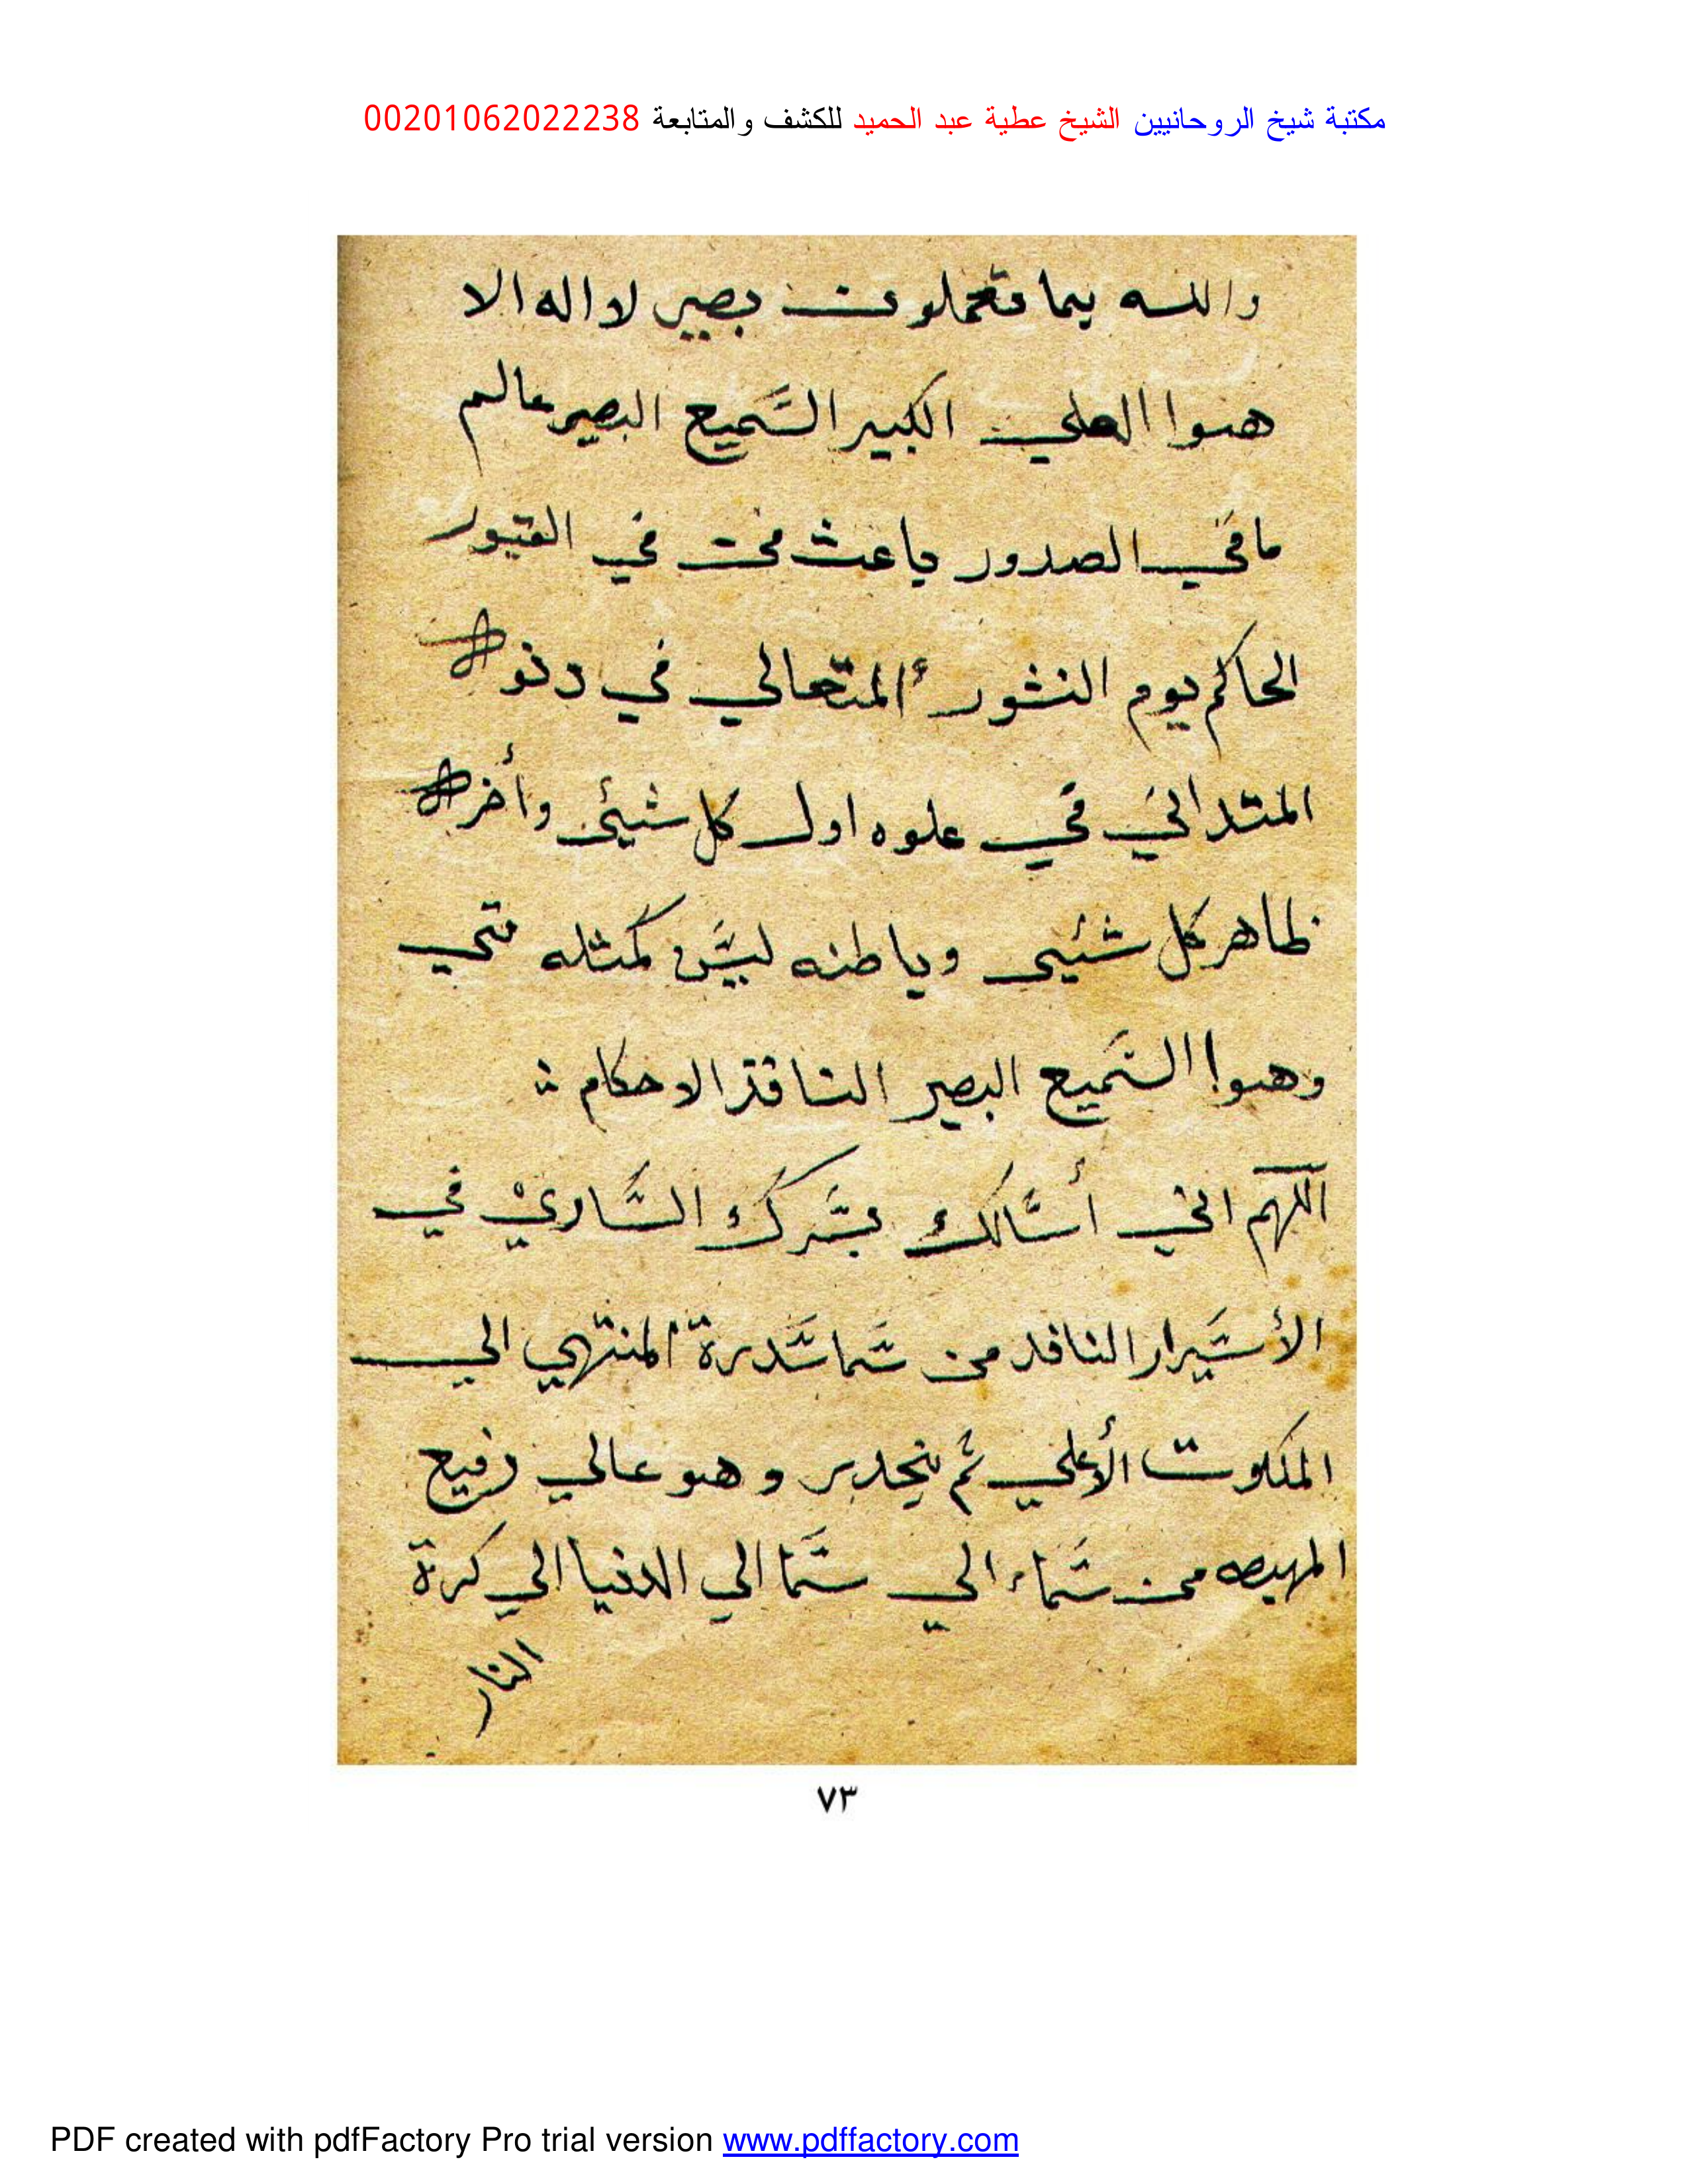 مكتبة شيخ الروحانيين الشيخ عطية عبد الحميد للكشف والمتابعة 00201062022238
والله بما تعملون بصير لا اله الا
هوا العلي الكبير السميع البصير عالم
ما في الصدور باعث من في القبور
الحاكم يوم النشور المتعالي في دنوه
المتداني في علوه اول كل شيئ وأخره
ظاهر كل شئيى وباطنه ليس كمثله شي
وهوا السميع البصير النافذ الاحكام
اللهم اني أسالك بسرك الساري في
الأسرار النافد من سما سدرة المنتهي الي
الملكوت الأعلي ثم ينحدر وهو عالي رفيع
من سماء الي سما الي الدنيا الي كرة
النار
٧٣
PDF created with pdfFactory Pro trial version www.pdffactory.com